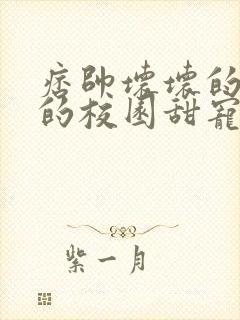 痞帅壞壞的
的校园甜寵
紫一月